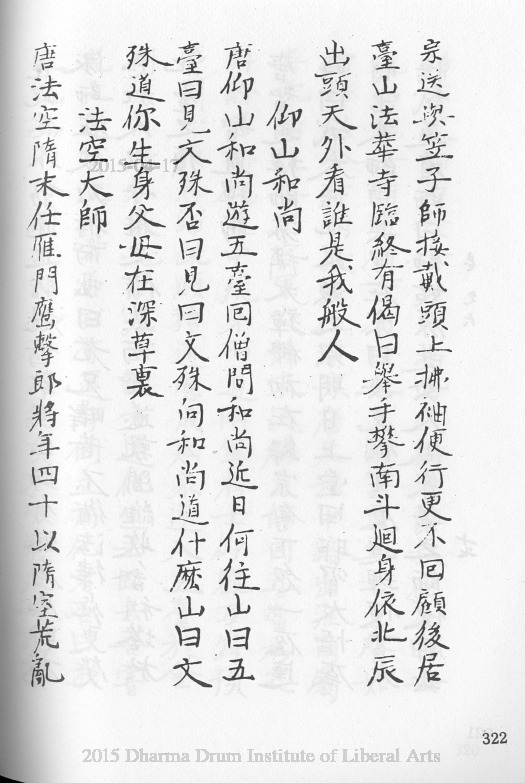 宗送與笠子師接戴頭上拂袖便行更不回顧後居
臺山法華寺臨終有偈曰舉手攀南斗廻身依北辰
出頭天外看誰是我般人
仰山和尚
唐仰山和尚遊五臺回僧問和尚近日何往山曰五
臺曰見文殊否曰見曰文殊向和尚道什麽山曰文
殊道你生身父母在深草裏
法空大師
唐法空隋末任鴈門鷹擊郎將年四十以隋室荒亂
322
2015 Dharma Drum Institute of Liberal Arts